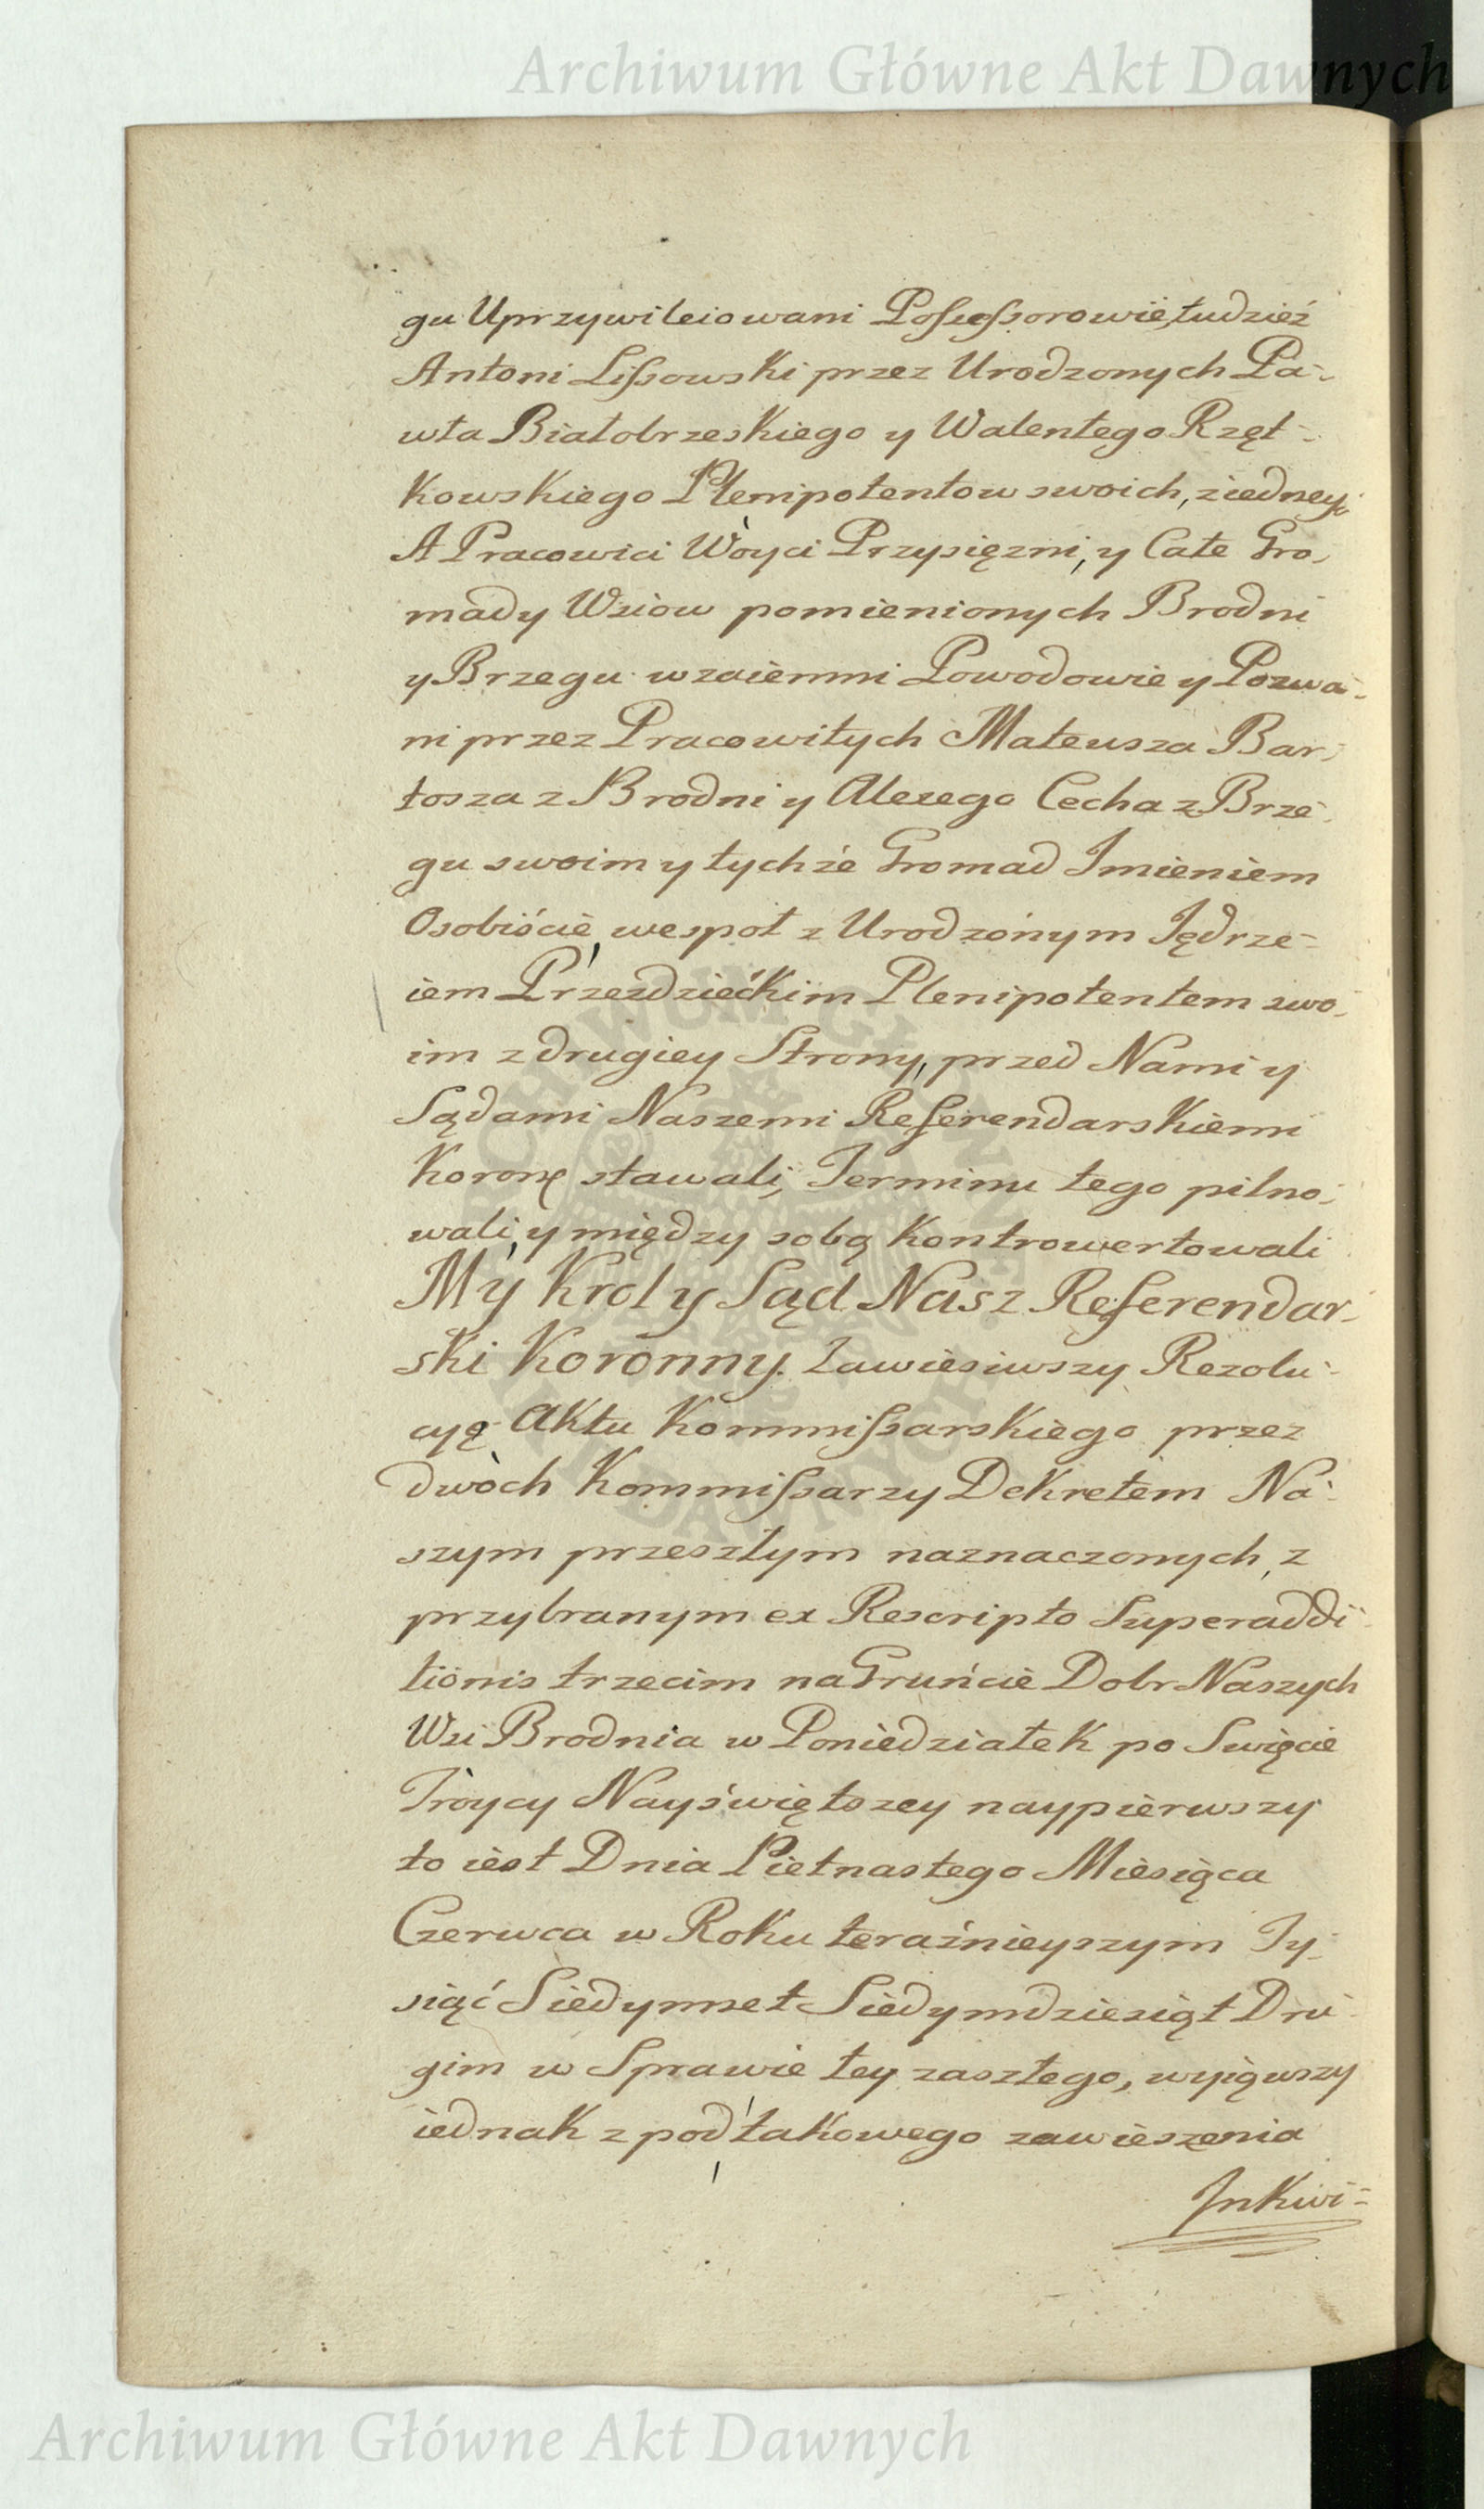 Archiwum Główne Akt Dawnych
gu Uprzywileiowani Possessorowie, tudzież
Antoni Lissowski przez Urodzonych Pa-
wła Białobrzeskiego y Walentego Rzęt-
kowskiego Plenipotentow swoich, z iedney
A Pracowici Wòyci Przysięzni, y Całe Gro-
mady Wsiow pomienionych Brodni
y Brzegu wzaiemni Powodowie y Pozwa-
ni przez Pracowitych Mateusza Bar-
tosza z Brodni y Alexego Cecha z Brze-
gu swoim y tychże Gromad Imieniem
Osobiście, wespoł z Urodzonym Jędrze-
iem Przezdzieckim Plenipotentem swo-
im z drugiey Strony, przed Nami y
Sądami Naszemi Referendarskiemi
Koronę stawali, Terminu tego pilno-
wali, y między sobą Kontrowertowali
My Krol y Sąd Nasz Referendar-
ski Koronny. Zawiesiwszy Rezolu-
cyę Aktu Kommissarskiego przez
dwòch Kommissarzy Dekretem Na-
szym przeszłym naznaczonych, z
przybranym ex Rescripto Superaddi-
tionis trzecim na Gruńcie Dobr Naszych
Wsi Brodnia w Poniedziałek po Swięcie
Tròycy Nayświętszey naypierwszy
to iest Dnia Pietnastego Miesiąca
Czerwca w Roku teraźnieyszym Ty-
siąć Siedymset Siedymdziesiąt Dru-
gim w Sprawie tey zaszłego, wyiąwszy
iednak z pod takowego zawieszenia
Inkwi-
Archiwum Główne Akt Dawnych